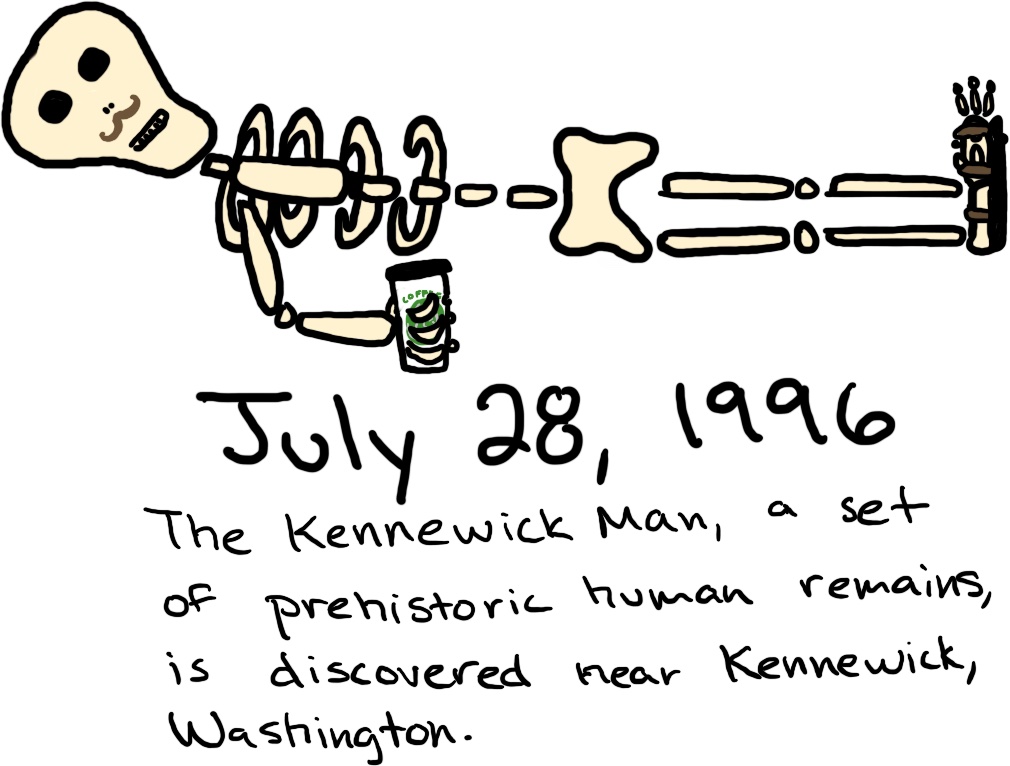 COFFEE
July 28, 1996
The Kennewick Man, a set
of prehistoric human remains,
is discovered near Kennewick,
Washington.